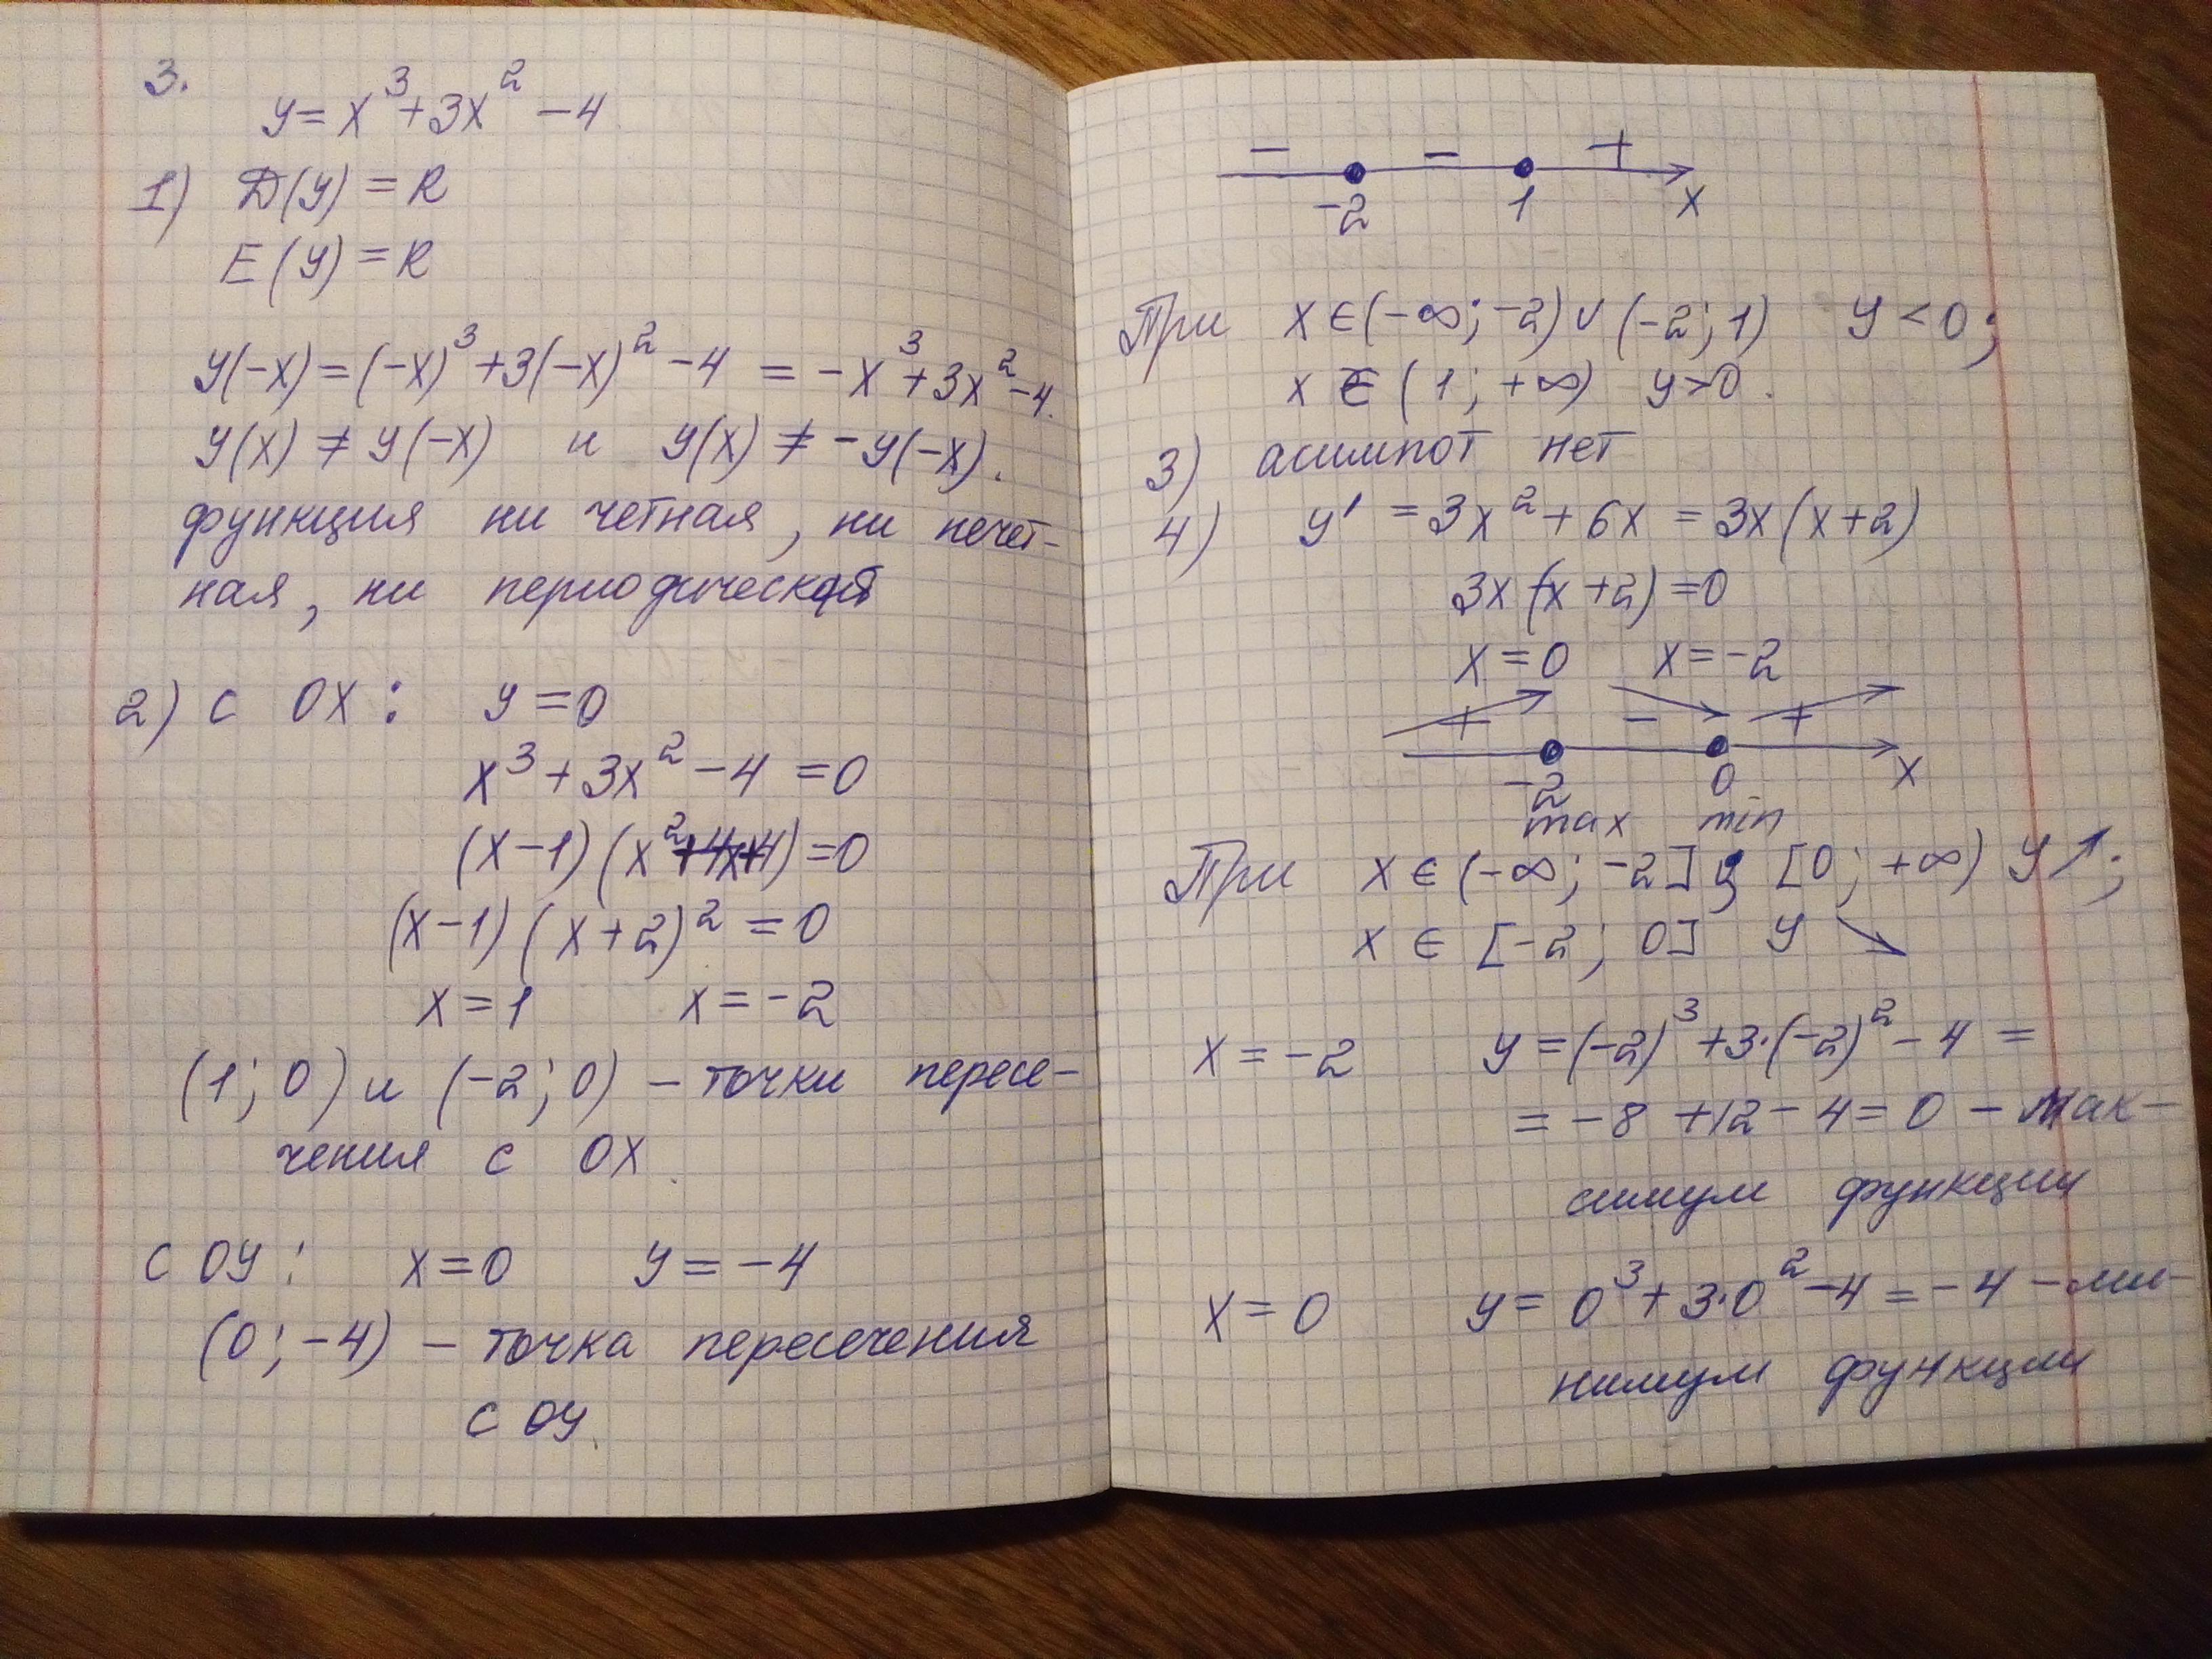 3.
y = x³ + 3x² - 4
1) D(y) = R
E(y) = R
y(-x) = (-x)³ + 3(-x)² - 4 = -x³ + 3x² - 4.
y(x) ≠ y(-x) и y(x) ≠ -y(-x).
функция ни четная, ни нечет-
ная, ни периодической
2) с OX: y = 0
x³ + 3x² - 4 = 0
(x-1)(x²+4x+4) = 0
(x-1)(x+2)² = 0
x = 1 x = -2
(1; 0) и (-2; 0) - точки пересе-
чения с OX.
с OY: x = 0 y = -4
(0; -4) - точка пересечения
с OY.
- - +
-2 1 x
При x ∈ (-∞; -2) ∪ (-2; 1) y < 0;
x ∈ (1; +∞) y > 0.
3) асимпот нет
4) y' = 3x² + 6x = 3x(x+2)
3x(x+2) = 0
x = 0 x = -2
+ - +
-2 0 x
max min
При x ∈ (-∞; -2] и [0; +∞) y ↗;
x ∈ [-2; 0] y ↘
x = -2 y = (-2)³ + 3·(-2)² - 4 =
= -8 + 12 - 4 = 0 - мак-
симум функции
x = 0 y = 0³ + 3·0² - 4 = -4 - ми-
нимум функции